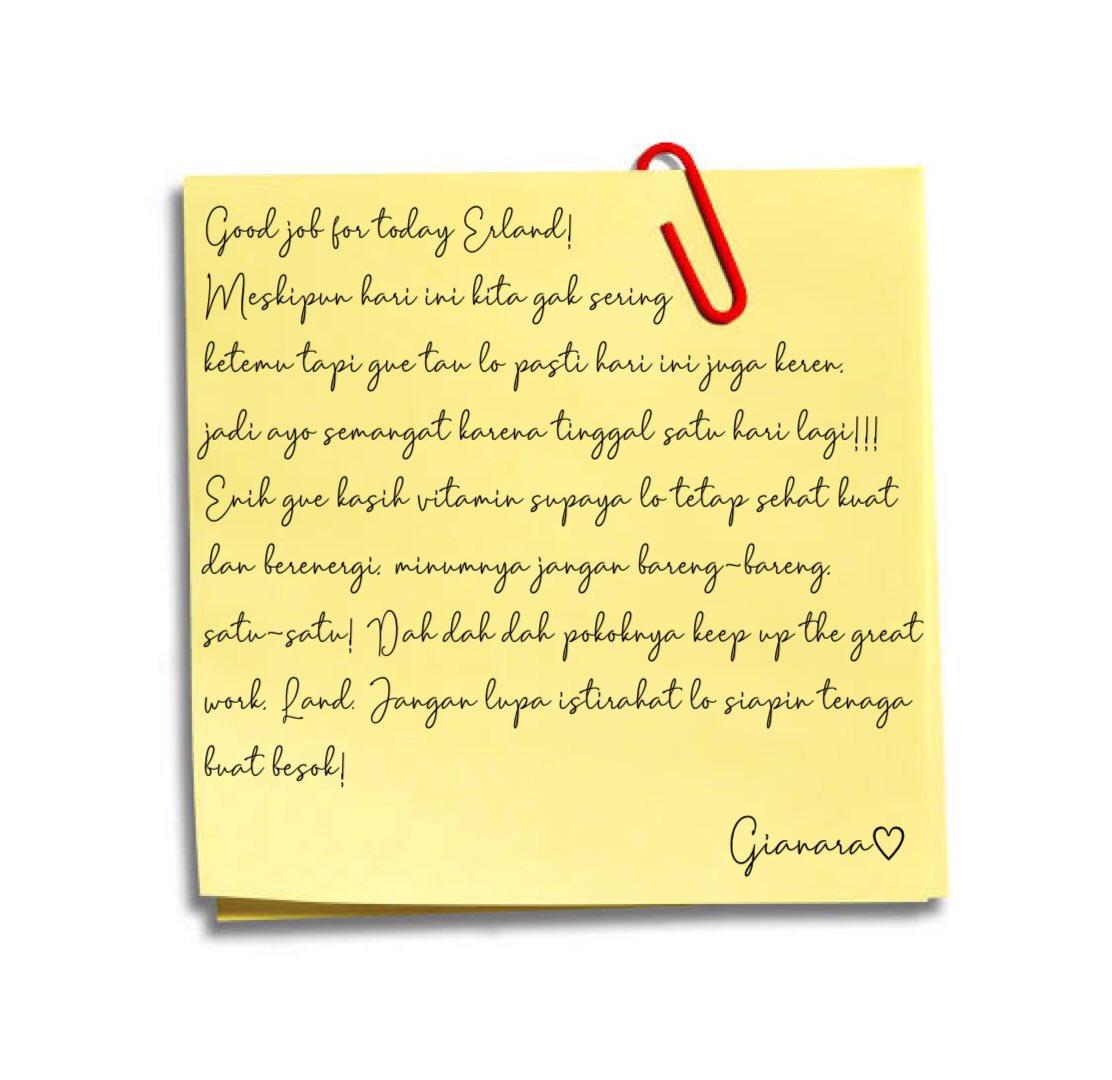 Good job for today Erland!
Meskipun hari ini kita gak sering
ketemu tapi gue tau lo pasti hari ini juga keren.
jadi ayo semangat karena tinggal satu hari lagi!!!
Enih gue kasih vitamin supaya lo tetap sehat kuat
dan berenergi. minumnya jangan bareng-bareng.
satu-satu! Dah dah dah pokoknya keep up the great
work. Land. Jangan lupa istirahat lo siapin tenaga
buat besok!
Gianara♡